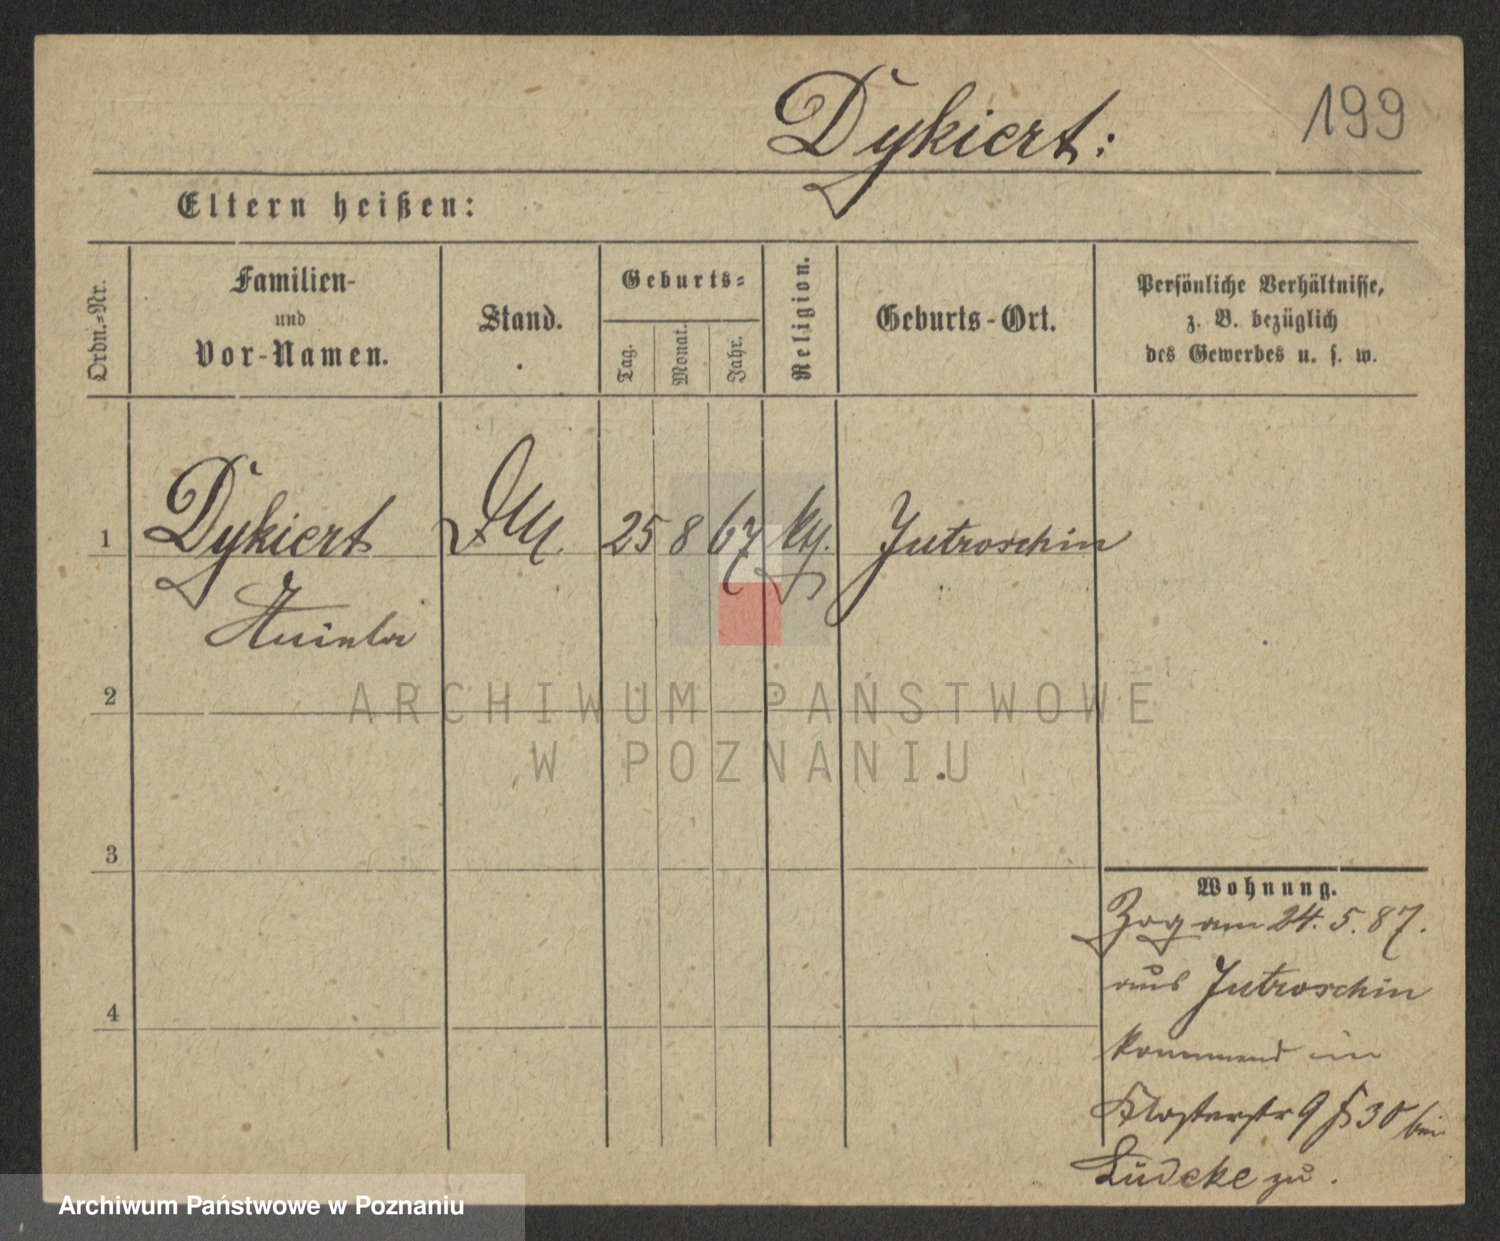 199
Dykiert:
Eltern heißen:
Ordn.-Nr.
Familien-
und
Vor-Namen.
Stand.
Geburts-
Tag.
Monat.
Jahr.
Religion.
Geburts-Ort.
Persönliche Verhältnisse,
z. B. bezüglich
des Gewerbes u. s. w.
1
Dykiert
25 8 67
Jutroschin
2
ARCHIWUM PAŃSTWOWE
W POZNANIU
3
4
Wohnung.
Zog am 24. 5. 87.
aus Jutroschin
kommend in
Klosterstr 9 § 30 bei
Lüdeke zu.
Archiwum Państwowe w Poznaniu